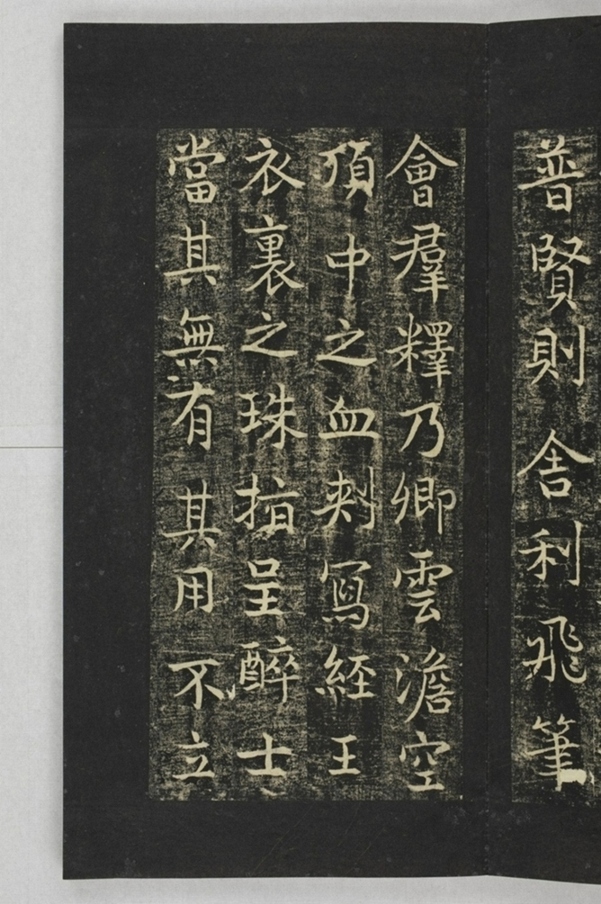 普賢則舍利飛筆
會羣釋乃卿雲澹空
頂中之血刺寫經王
衣裏之珠指呈醉士
當其無有其用不立